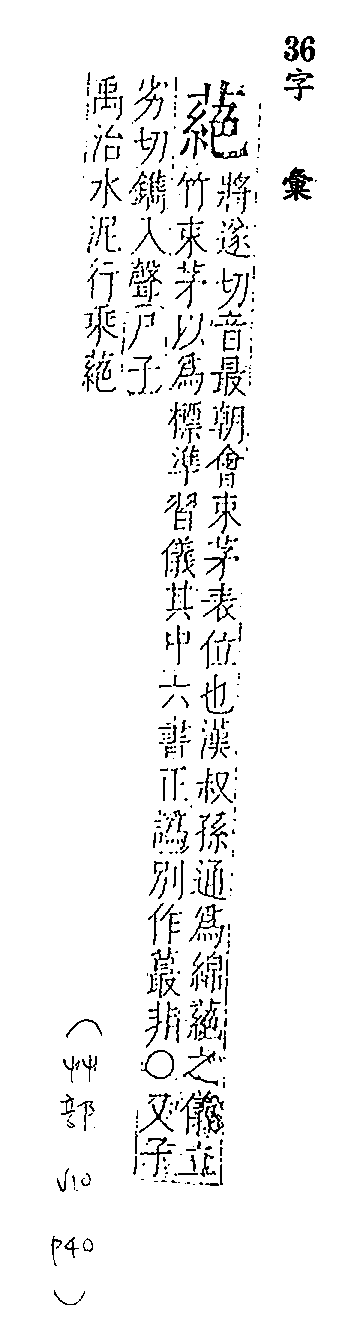 36字 彙
蕝 將遂切音最朝會束茅表位也漢叔孫通爲綿蕝之儀立
竹束茅以爲標準習儀其中六書正譌別作蕞非○又子
劣切鐫入聲尸子
禹治水泥行乘蕝
(艸部 V10 P40)